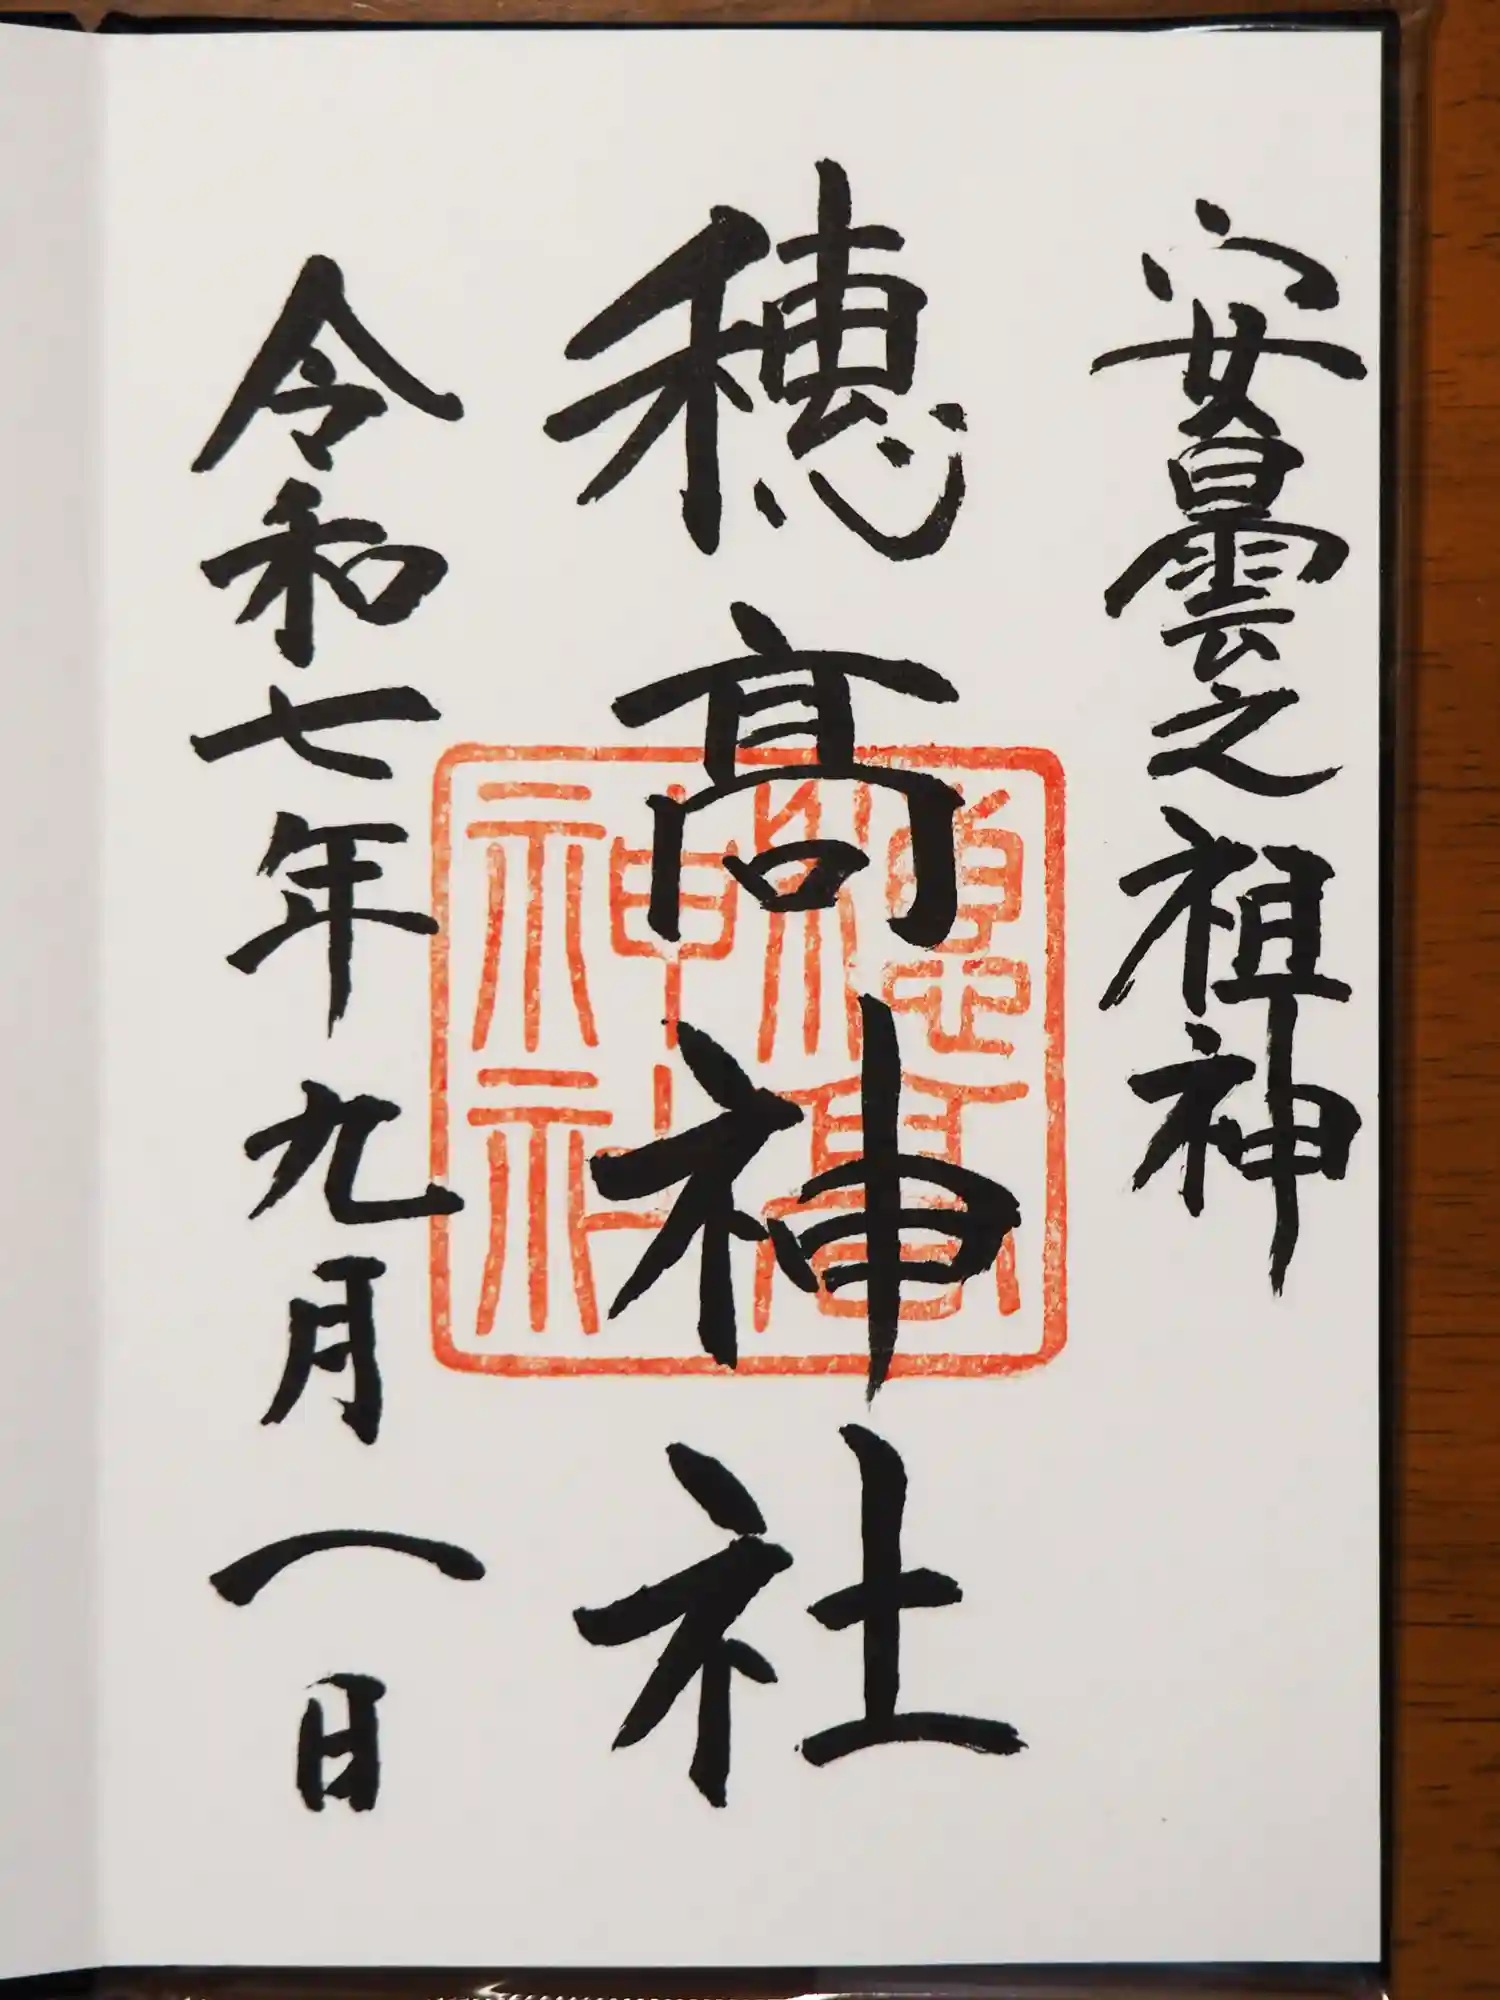 安曇之祖神
穂髙神社
穂高神社
令和七年九月一日